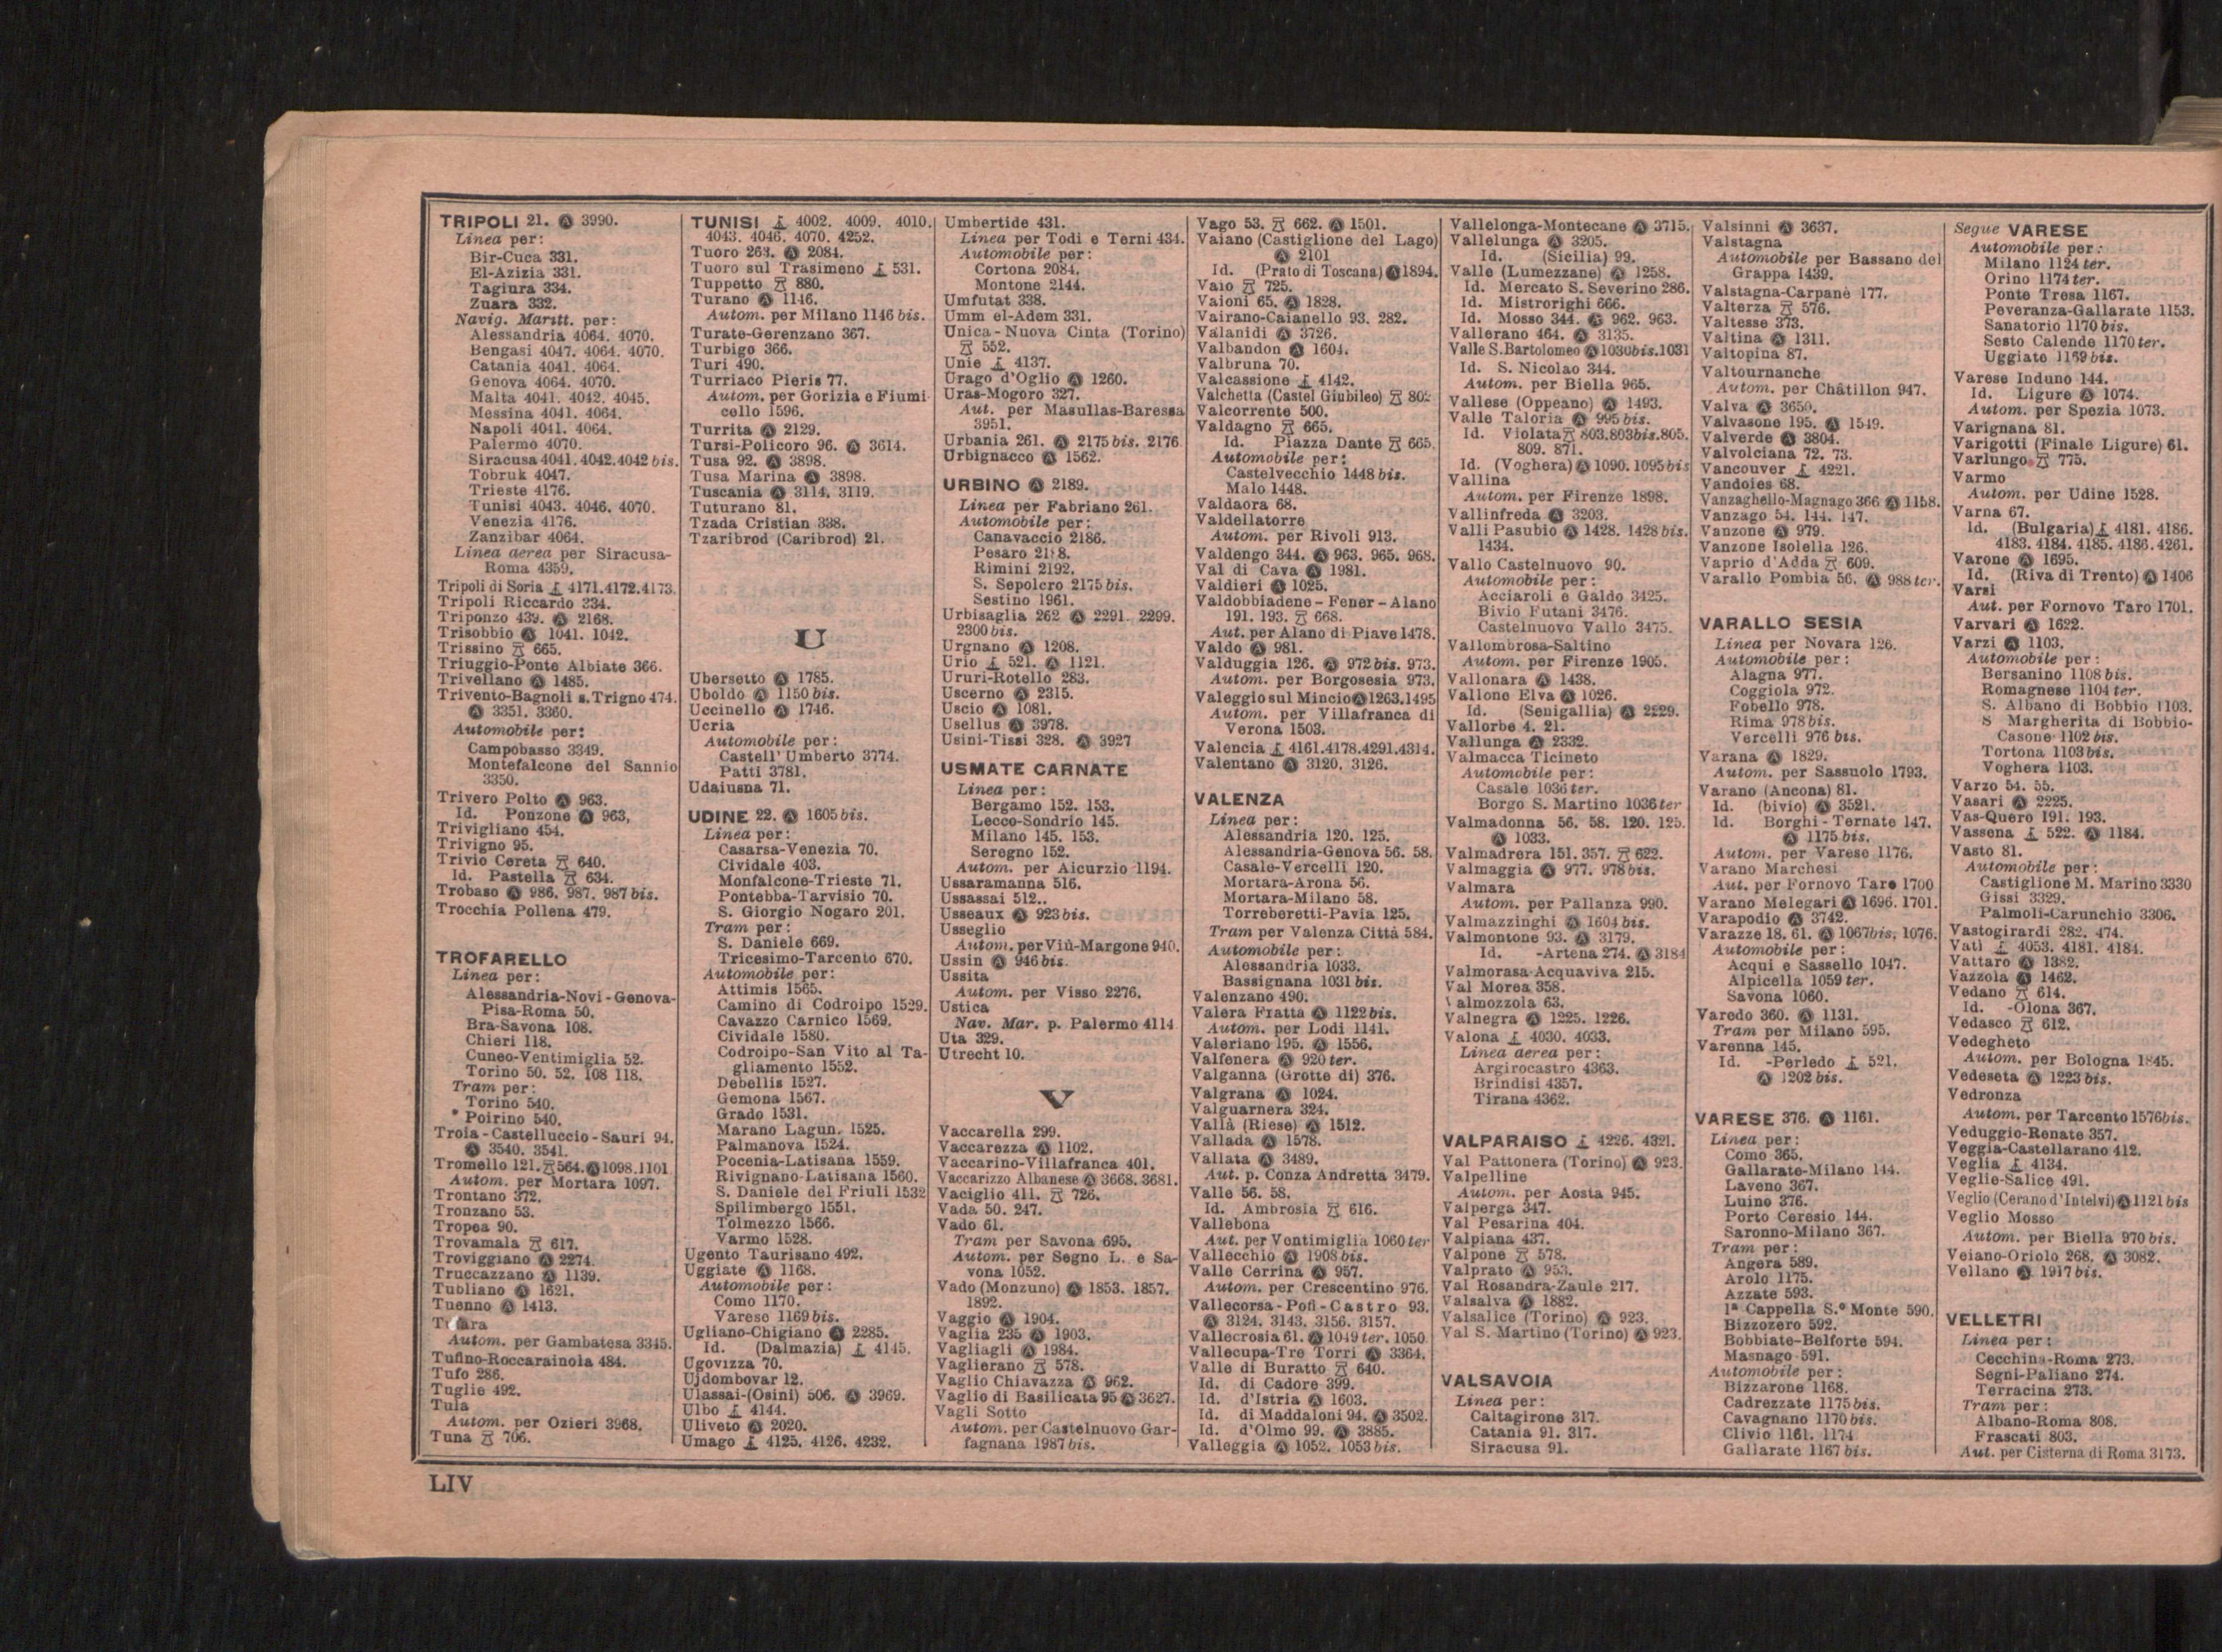 TRIPOLI 21. Ⓐ 3990.
Linea per:
Bir-Cuca 331.
El-Azizia 331.
Tagiura 334.
Zuara 332.
Navig. Maritt. per:
Alessandria 4064. 4070.
Bengasi 4047. 4064. 4070.
Catania 4041. 4064.
Genova 4064. 4070.
Malta 4041. 4042. 4045.
Messina 4041. 4064.
Napoli 4041. 4064.
Palermo 4070.
Siracusa 4041. 4042. 4042 bis.
Tobruk 4047.
Trieste 4176.
Tunisi 4043. 4046. 4070.
Venezia 4176.
Zanzibar 4064.
Linea aerea per Siracusa-
Roma 4359.
Tripoli di Soria 4171. 4172. 4173.
Tripoli Riccardo 334.
Triponzo 439. Ⓐ 2168.
Trisobbio Ⓐ 1041. 1042.
Trissino 665.
Triuggio-Ponte Albiate 366.
Trivellano Ⓐ 1485.
Trivento-Bagnoli s. Trigno 474.
Ⓐ 3351. 3360.
Automobile per:
Campobasso 3349.
Montefalcone del Sannio
3350.
Trivero Polto Ⓐ 963.
Id. Ponzone Ⓐ 963,
Trivigliano 454.
Trivigno 95.
Trivio Cereta 640.
Id. Pastella 634.
Trobaso Ⓐ 986. 987. 987 bis.
Trocchia Pollena 479.
TROFARELLO
Linea per:
Alessandria-Novi-Genova-
Pisa-Roma 50.
Bra-Savona 108.
Chieri 118.
Cuneo-Ventimiglia 52.
Torino 50. 52. 108 118.
Tram per:
Torino 540.
Poirino 540.
Troia-Castelluccio-Sauri 94.
Ⓐ 3540. 3541.
Tromello 121. 564. Ⓐ 1098. 1101
Autom. per Mortara 1097.
Trontano 372.
Tronzano 53.
Tropea 90.
Trovamala 617.
Troviggiano Ⓐ 2274.
Truccazzano Ⓐ 1139.
Tubliano Ⓐ 1621.
Tuenno Ⓐ 1413.
Autom. per Gambatesa 3345.
Tufino-Roccarainola 484.
Tufo 286.
Tuglie 492.
Tula
Autom. per Ozieri 3968.
Tuna 706.
TUNISI 4002. 4009. 4010.
4043. 4046. 4070. 4252.
Tuoro 263. Ⓐ 2084.
Tuoro sul Trasimeno 531.
Tuppetto 880.
Turano Ⓐ 1146.
Autom. per Milano 1146 bis.
Turate-Gerenzano 367.
Turbigo 366.
Turi 490.
Turriaco Pieris 77.
Autom. per Gorizia e Fiumi
cello 1596.
Turrita Ⓐ 2129.
Tursi-Policoro 96. Ⓐ 3614.
Tusa 92. Ⓐ 3898.
Tusa Marina Ⓐ 3898.
Tuscania Ⓐ 3114. 3119.
Tuturano 81.
Tzada Cristian 338.
Tzaribrod (Caribrod) 21.
U
Ubersetto Ⓐ 1785.
Uboldo Ⓐ 1150 bis.
Uccinello Ⓐ 1746.
Ucria
Automobile per:
Castell' Umberto 3774.
Patti 3781.
Udaiusna 71.
UDINE 22. Ⓐ 1605 bis.
Linea per:
Casarsa-Venezia 70.
Cividale 403.
Monfalcone-Trieste 71.
Pontebba-Tarvisio 70.
S. Giorgio Nogaro 201.
Tram per:
S. Daniele 669.
Tricesimo-Tarcento 670.
Automobile per:
Attimis 1565.
Camino di Codroipo 1529.
Cavazzo Carnico 1569.
Cividale 1580.
Codroipo-San Vito al Ta-
gliamento 1552.
Debellis 1527.
Gemona 1567.
Grado 1531.
Marano Lagun. 1525.
Palmanova 1524.
Pocenia-Latisana 1559.
Rivignano-Latisana 1560.
S. Daniele del Friuli 1532
Spilimbergo 1551.
Tolmezzo 1566.
Varmo 1528.
Ugento Taurisano 492.
Uggiate Ⓐ 1168.
Automobile per:
Como 1170.
Varese 1169 bis.
Ugliano-Chigiano Ⓐ 2285.
Id. (Dalmazia) 4145.
Ugovizza 70.
Ujdombovar 12.
Ulassai-(Osini) 506. Ⓐ 3969.
Ulbo 4144.
Uliveto Ⓐ 2020.
Umago 4125. 4126. 4232.
Umbertide 431.
Linea per Todi e Terni 434.
Automobile per:
Cortona 2084.
Montone 2144.
Umfutat 338.
Umm el-Adem 331.
Unica-Nuova Cinta (Torino)
552.
Unie 4137.
Urago d'Oglio Ⓐ 1260.
Uras-Mogoro 327.
Aut. per Masullas-Baressa
3951.
Urbania 261. Ⓐ 2175 bis. 2176
Urbignacco Ⓐ 1562.
URBINO Ⓐ 2189.
Linea per Fabriano 261.
Automobile per:
Canavaccio 2186.
Pesaro
Rimini 2192.
S. Sepolcro 2175 bis.
Sestino 1961.
Urbisaglia 262 Ⓐ 2291. 2299.
2300 bis.
Urgnano Ⓐ 1208.
Urio 521. Ⓐ 1121.
Ururi-Rotello 283.
Uscerno Ⓐ 2315.
Uscio Ⓐ 1081.
Usellus Ⓐ 3978.
Usini-Tissi 328. Ⓐ 3927
USMATE CARNATE
Linea per:
Bergamo 152. 153.
Lecco-Sondrio 145.
Milano 145. 153.
Seregno 152.
Autom. per Aicurzio 1194.
Ussaramanna 516.
Ussassai 512..
Usseaux Ⓐ 923 bis.
Usseglio
Autom. per Viù-Margone 940.
Ussin Ⓐ 946 bis.
Ussita
Autom. per Visso 2276.
Ustica
Nav. Mar. p. Palermo 4114
Uta 329.
Utrecht 10.
V
Vaccarella 299.
Vaccarezza Ⓐ 1102.
Vaccarino-Villafranca 401.
Vaccarizzo Albanese Ⓐ 3668. 3681.
Vaciglio 411. 726.
Vada 50. 247.
Vado 61.
Tram per Savona 695.
Autom. per Segno L. e Sa-
vona 1052.
Vado (Monzuno) Ⓐ 1853. 1857.
1892.
Vaggio Ⓐ 1904.
Vaglia 235 Ⓐ 1903.
Vagliagli Ⓐ 1984.
Vaglierano 578.
Vaglio Chiavazza Ⓐ 962.
Vaglio di Basilicata 95 Ⓐ 3627.
Vagli Sotto
Autom. per Castelnuovo Gar-
fagnana 1987 bis.
Vago 53. 662. Ⓐ 1501.
Vaiano (Castiglione del Lago)
Ⓐ 2101
Id. (Prato di Toscana) Ⓐ 1894.
Vaio 725.
Vaioni 65. Ⓐ 1828.
Vairano-Caianello 93. 282.
Valanidi Ⓐ 3726.
Valbandon Ⓐ 1604.
Valbruna 70.
Valcassione 4142.
Valchetta (Castel Giubileo) 802
Valcorrente 500.
Valdagno 665.
Id. Piazza Dante 665.
Automobile per:
Castelvecchio 1448 bis.
Malo 1448.
Valdaora 68.
Valdellatorre
Autom. per Rivoli 913.
Valdengo 344. Ⓐ 963. 965. 968.
Val di Cava Ⓐ 1981.
Valdieri Ⓐ 1025.
Valdobbiadene-Fener-Alano
191. 193. 668.
Aut. per Alano di Piave 1478.
Valdo Ⓐ 981.
Valduggia 126. Ⓐ 972 bis. 973.
Autom. per Borgosesia 973.
Valeggio sul Mincio Ⓐ 1263. 1495
Autom. per Villafranca di
Verona 1503.
Valencia 4161. 4178. 4291. 4314.
Valentano Ⓐ 3120. 3126.
VALENZA
Linea per:
Alessandria 120. 125.
Alessandria-Genova 56. 58.
Casale-Vercelli 120.
Mortara-Arona 56.
Mortara-Milano 58.
Torreberetti-Pavia 125.
Tram per Valenza Città 584.
Automobile per:
Alessandria 1033.
Bassignana 1031 bis.
Valenzano 490.
Valera Fratta Ⓐ 1122 bis.
Autom. per Lodi 1141.
Valeriano 195. Ⓐ 1556.
Valfenera Ⓐ 920 ter.
Valganna (Grotte di) 376.
Valgrana Ⓐ 1024.
Valguarnera 324.
Vallà (Riese) Ⓐ 1512.
Vallada Ⓐ 1578.
Vallata Ⓐ 3489.
Aut. p. Conza Andretta 3479.
Valle 56. 58.
Id. Ambrosia 616.
Vallebona
Aut. per Ventimiglia 1060 ter
Vallecchio Ⓐ 1908 bis.
Valle Cerrina Ⓐ 957.
Autom. per Crescentino 976.
Vallecorsa-Pofi-Castro 93.
Ⓐ 3124. 3143. 3156. 3157.
Vallecrosia 61. Ⓐ 1049 ter. 1050
Vallecupa-Tre Torri Ⓐ 3364.
Valle di Buratto 640.
Id. di Cadore 399.
Id. d'Istria Ⓐ 1603.
Id. di Maddaloni 94. Ⓐ 3502.
Id. d'Olmo 99. Ⓐ 3885.
Valleggia Ⓐ 1052. 1053 bis.
Vallelonga-Montecane Ⓐ 3715.
Vallelunga Ⓐ 3205.
Id. (Sicilia) 99.
Valle (Lumezzane) Ⓐ 1258.
Id. Mercato S. Severino 286.
Id. Mistrorighi 666.
Id. Mosso 344. Ⓐ 962. 963.
Vallerano 464. Ⓐ 3135.
Valle S. Bartolomeo Ⓐ 1030bis. 1031
Id. S. Nicolao 344.
Autom. per Biella 965.
Vallese (Oppeano) Ⓐ 1493.
Valle Taloria Ⓐ 995 bis.
Id. Violata 803. 803bis. 805.
809. 871.
Id. (Voghera) Ⓐ 1090. 1095 bis
Vallina
Autom. per Firenze 1898.
Vallinfreda Ⓐ 3203.
Valli Pasubio Ⓐ 1428. 1428 bis.
1434.
Vallo Castelnuovo 90.
Automobile per:
Acciaroli e Galdo 3425.
Bivio Futani 3476.
Castelnuovo Vallo 3475.
Vallombrosa-Saltino
Autom. per Firenze 1905.
Vallonara Ⓐ 1438.
Vallone Elva Ⓐ 1026.
Id. (Senigallia) Ⓐ 2229.
Vallorbe 4. 21.
Vallunga Ⓐ 2332.
Valmacca Ticineto
Automobile per:
Casale 1036 ter.
Borgo S. Martino 1036 ter
Valmadonna 56. 58. 120. 125.
Ⓐ 1033.
Valmadrera 151. 357. 622.
Valmaggia Ⓐ 977. 978 bis.
Valmara
Autom. per Pallanza 990.
Valmazzinghi Ⓐ 1604 bis.
Valmontone 93. Ⓐ 3179.
Id. -Artena 274. Ⓐ 3184
Valmorasa-Acquaviva 215.
Val Morea 358.
Valmozzola 63.
Valnegra Ⓐ 1225. 1226.
Valona 4030. 4033.
Linea aerea per:
Argirocastro 4363.
Brindisi 4357.
Tirana 4362.
VALPARAISO 4226. 4321.
Val Pattonera (Torino) Ⓐ 923.
Valpelline
Autom. per Aosta 945.
Valperga 347.
Val Pesarina 404.
Valpiana 437.
Valpone 578.
Valprato Ⓐ 953.
Val Rosandra-Zaule 217.
Valsalva Ⓐ 1882.
Valsalice (Torino) Ⓐ 923.
Val S. Martino (Torino) Ⓐ 923.
VALSAVOIA
Linea per:
Caltagirone 317.
Catania 91. 317.
Siracusa 91.
Valsinni Ⓐ 3637.
Valstagna
Automobile per Bassano del
Grappa 1439.
Valstagna-Carpanè 177.
Valterza 576.
Valtesse 373.
Valtina Ⓐ 1311.
Valtopina 87.
Valtournanche
Autom. per Châtillon 947.
Valva Ⓐ 3650.
Valvasone 195. Ⓐ 1549.
Valverde Ⓐ 3804.
Valvolciana 72. 73.
Vancouver 4221.
Vandoies 68.
Vanzaghello-Magnago 366 Ⓐ 1158.
Vanzago 54. 144. 147.
Vanzone Ⓐ 979.
Vanzone Isolella 126.
Vaprio d'Adda 609.
Varallo Pombia 56. Ⓐ 988 ter.
VARALLO SESIA
Linea per Novara 126.
Automobile per:
Alagna 977.
Coggiola 972.
Fobello 978.
Rima 978 bis.
Vercelli 976 bis.
Varana Ⓐ 1829.
Autom. per Sassuolo 1793.
Varano (Ancona) 81.
Id. (bivio) Ⓐ 3521.
Id. Borghi-Ternate 147.
Ⓐ 1175 bis.
Autom. per Varese 1176.
Varano Marchesi
Aut. per Fornovo Taro 1700
Varano Melegari Ⓐ 1696. 1701.
Varapodio Ⓐ 3742.
Varazze 18. 61. Ⓐ 1067bis. 1076.
Automobile per:
Acqui e Sassello 1047.
Alpicella 1059 ter.
Savona 1060.
Varedo 360. Ⓐ 1131.
Tram per Milano 595.
Varenna 145.
Id. -Perledo 521.
Ⓐ 1202 bis.
VARESE 376. Ⓐ 1161.
Linea per:
Como 365.
Gallarate-Milano 144.
Laveno 367.
Luino 376.
Porto Ceresio 144.
Saronno-Milano 367.
Tram per:
Angera 589.
Arolo 1175.
Azzate 593.
1ª Cappella S.º Monte 590.
Bizzozero 592.
Bobbiate-Belforte 594.
Masnago 591.
Automobile per:
Bizzarone 1168.
Cadrezzate 1175 bis.
Cavagnano 1170 bis.
Clivio 1161. 1174
Gallarate 1167 bis.
Segue VARESE
Automobile per:
Milano 1124 ter.
Orino 1174 ter.
Ponte Tresa 1167.
Peveranza-Gallarate 1153.
Sanatorio 1170 bis.
Sesto Calende 1170 ter.
Uggiate 1169 bis.
Varese Induno 144.
Id. Ligure Ⓐ 1074.
Autom. per Spezia 1073.
Varignana 81.
Varigotti (Finale Ligure) 61.
Varlungo 775.
Varmo
Autom. per Udine 1528.
Varna 67.
Id. (Bulgaria) 4181. 4186.
4183. 4184. 4185. 4186. 4261.
Varone Ⓐ 1695.
Id. (Riva di Trento) Ⓐ 1406
Varsi
Aut. per Fornovo Taro 1701.
Varvari Ⓐ 1622.
Varzi Ⓐ 1103.
Automobile per:
Bersanino 1108 bis.
Romagnese 1104 ter.
S. Albano di Bobbio 1103.
S Margherita di Bobbio-
Casone 1102 bis.
Tortona 1103 bis.
Voghera 1103.
Varzo 54. 55.
Vasari Ⓐ 2225.
Vas-Quero 191. 193.
Vassena 522. Ⓐ 1184.
Vasto 81.
Automobile per:
Castiglione M. Marino 3330
Gissi 3329.
Palmoli-Carunchio 3306.
Vastogirardi 282. 474.
Vatì 4053. 4181. 4184.
Vattaro Ⓐ 1382.
Vazzola Ⓐ 1462.
Vedano 614.
Id. -Olona 367.
Vedasco 612.
Vedegheto
Autom. per Bologna 1845.
Vedeseta Ⓐ 1223 bis.
Vedronza
Autom. per Tarcento 1576bis.
Veduggio-Renate 357.
Veggia-Castellarano 412.
Veglia 4134.
Veglie-Salice 491.
Veglio (Cerano d'Intelvi) Ⓐ 1121 bis
Veglio Mosso
Autom. per Biella 970 bis.
Veiano-Oriolo 268. Ⓐ 3082.
Vellano Ⓐ 1917 bis.
VELLETRI
Linea per:
Cecchina-Roma 273.
Segni-Paliano 274.
Terracina 273.
Tram per:
Albano-Roma 808.
Frascati 803.
Aut. per Cisterna di Roma 3173.
LIV